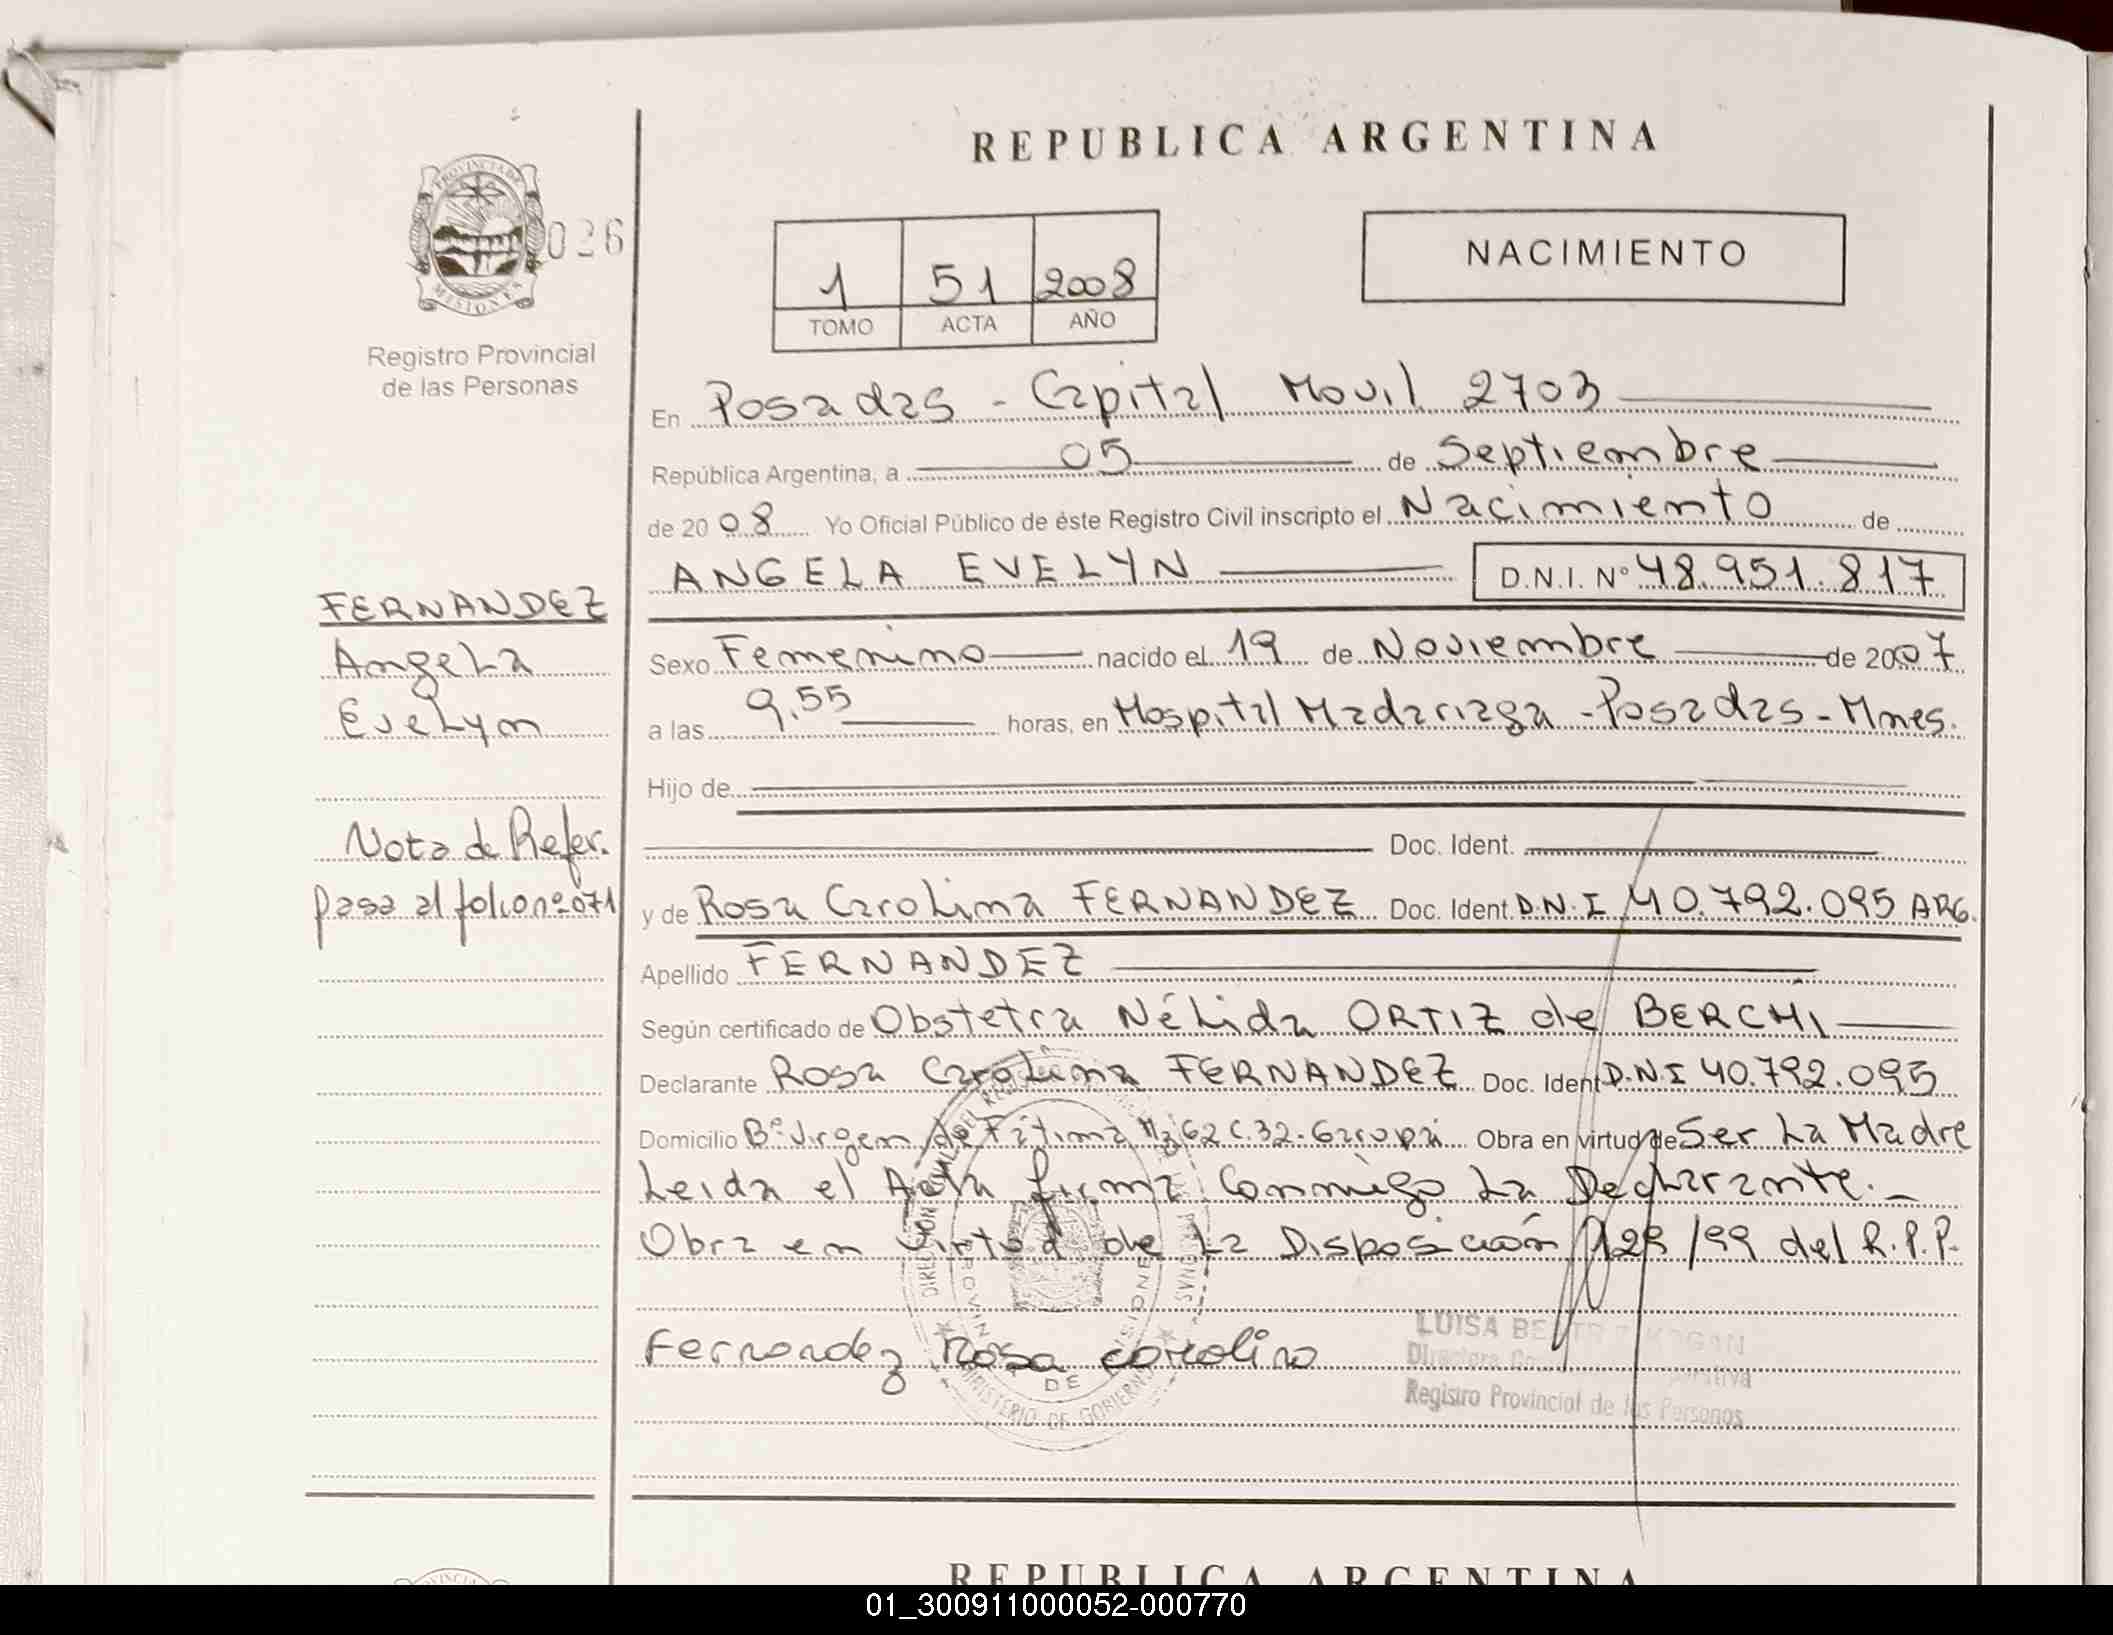 REPUBLICA ARGENTINA
PROVINCIA DE
MISIONES
026
1 51 2008
TOMO ACTA AÑO
NACIMIENTO
Registro Provincial
de las Personas
En Posadas - Capital Movil 2703
República Argentina, a 05 de Septiembre
de 2008 Yo Oficial Público de éste Registro Civil inscripto el Nacimiento de
ANGELA EVELYN D.N.I. Nº 48.951.817
FERNANDEZ
Angela
Evelyn
Sexo Femenino nacido el 19 de Noviembre de 2007
a las 9.55 horas, en Hospital Madariaga - Posadas - Mnes.
Hijo de
Doc. Ident.
Nota de Refer.
pasa al folio nº 071
y de Rosa Carolina FERNANDEZ Doc. Ident. D.N.I 40.792.095 ARG.
Apellido FERNANDEZ
Según certificado de Obstetra Nélida ORTIZ de BERCHI
Declarante Rosa Carolina FERNANDEZ Doc. Ident D.N.I 40.792.095
Domicilio Bº Virgen de Fátima Mz 62 C.32-Garupá Obra en virtud de Ser La Madre
Leida el Acta firma Conmigo La Declarante.-
Obra en virtud de La Disposición 128/99 del R.P.P.
Fernandez Rosa Carolina
LUISA
Registro Provincial de las Personas
MINISTERIO DE GOBIERNO
REPUBLICA ARGENTINA
01_300911000052-000770